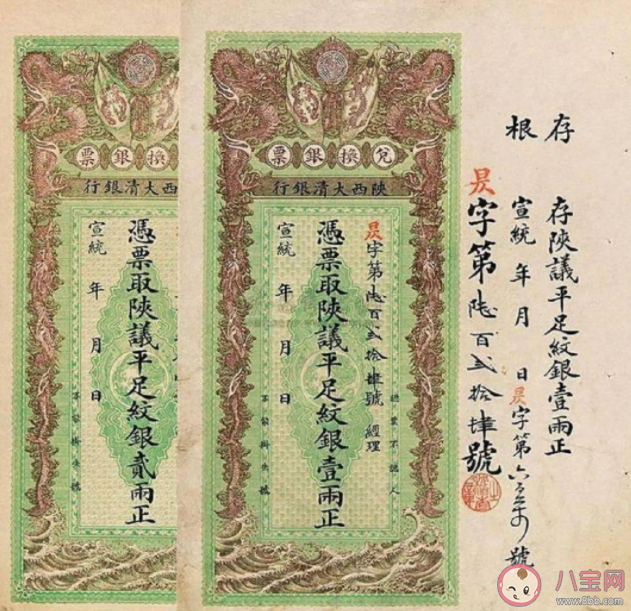 存根
存陝議平足紋銀壹兩正
宣統 年 月 日 昃字第 號
昃字第陸百弍拾肆號
兌換銀票
陝西大清銀行
昃字第陸百弍拾肆號 經理
憑票取陝議平足紋銀壹兩正
宣統 年 月 日
換銀票
西大清銀行
憑票取陝議平足紋銀貳兩正
宣統 年 月 日
八宝网
www.8bb.com